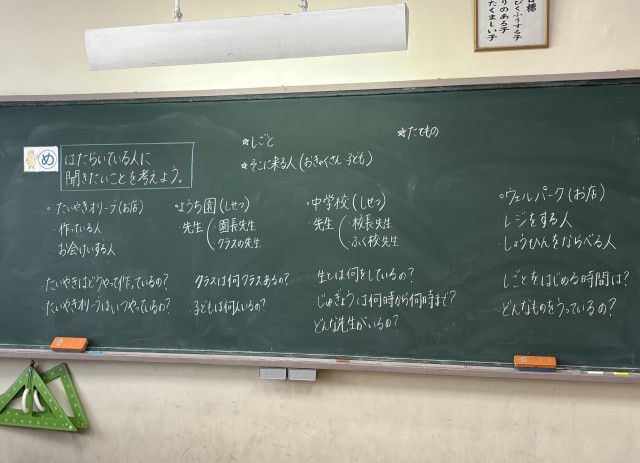 め
はたらいている人に
聞きたいことを考えよう。
☆しごと
☆そこに来る人(おきゃくさん 子ども)
☆たてもの
・たいやきオリーブ(お店)
・作っている人
お会けいする人
たいやきはどうやって作っているの?
たいやきオリーブはいつやっているの?
・ようち園(しせつ)
先生
・園長先生
・クラスの先生
クラスは何クラスあるの?
子どもは何人いるの?
・中学校(しせつ)
先生
・校長先生
・ふく校先生
生とは何をしているの?
じゅぎょうは何時から何時まで?
どんな先生がいるの?
・ウェルパーク(お店)
レジをする人
・しょうひんをならべる人
しごとをはじめる時間は?
どんなものをうっているの?
目標
びくふうする子
りのある子
たくましい子